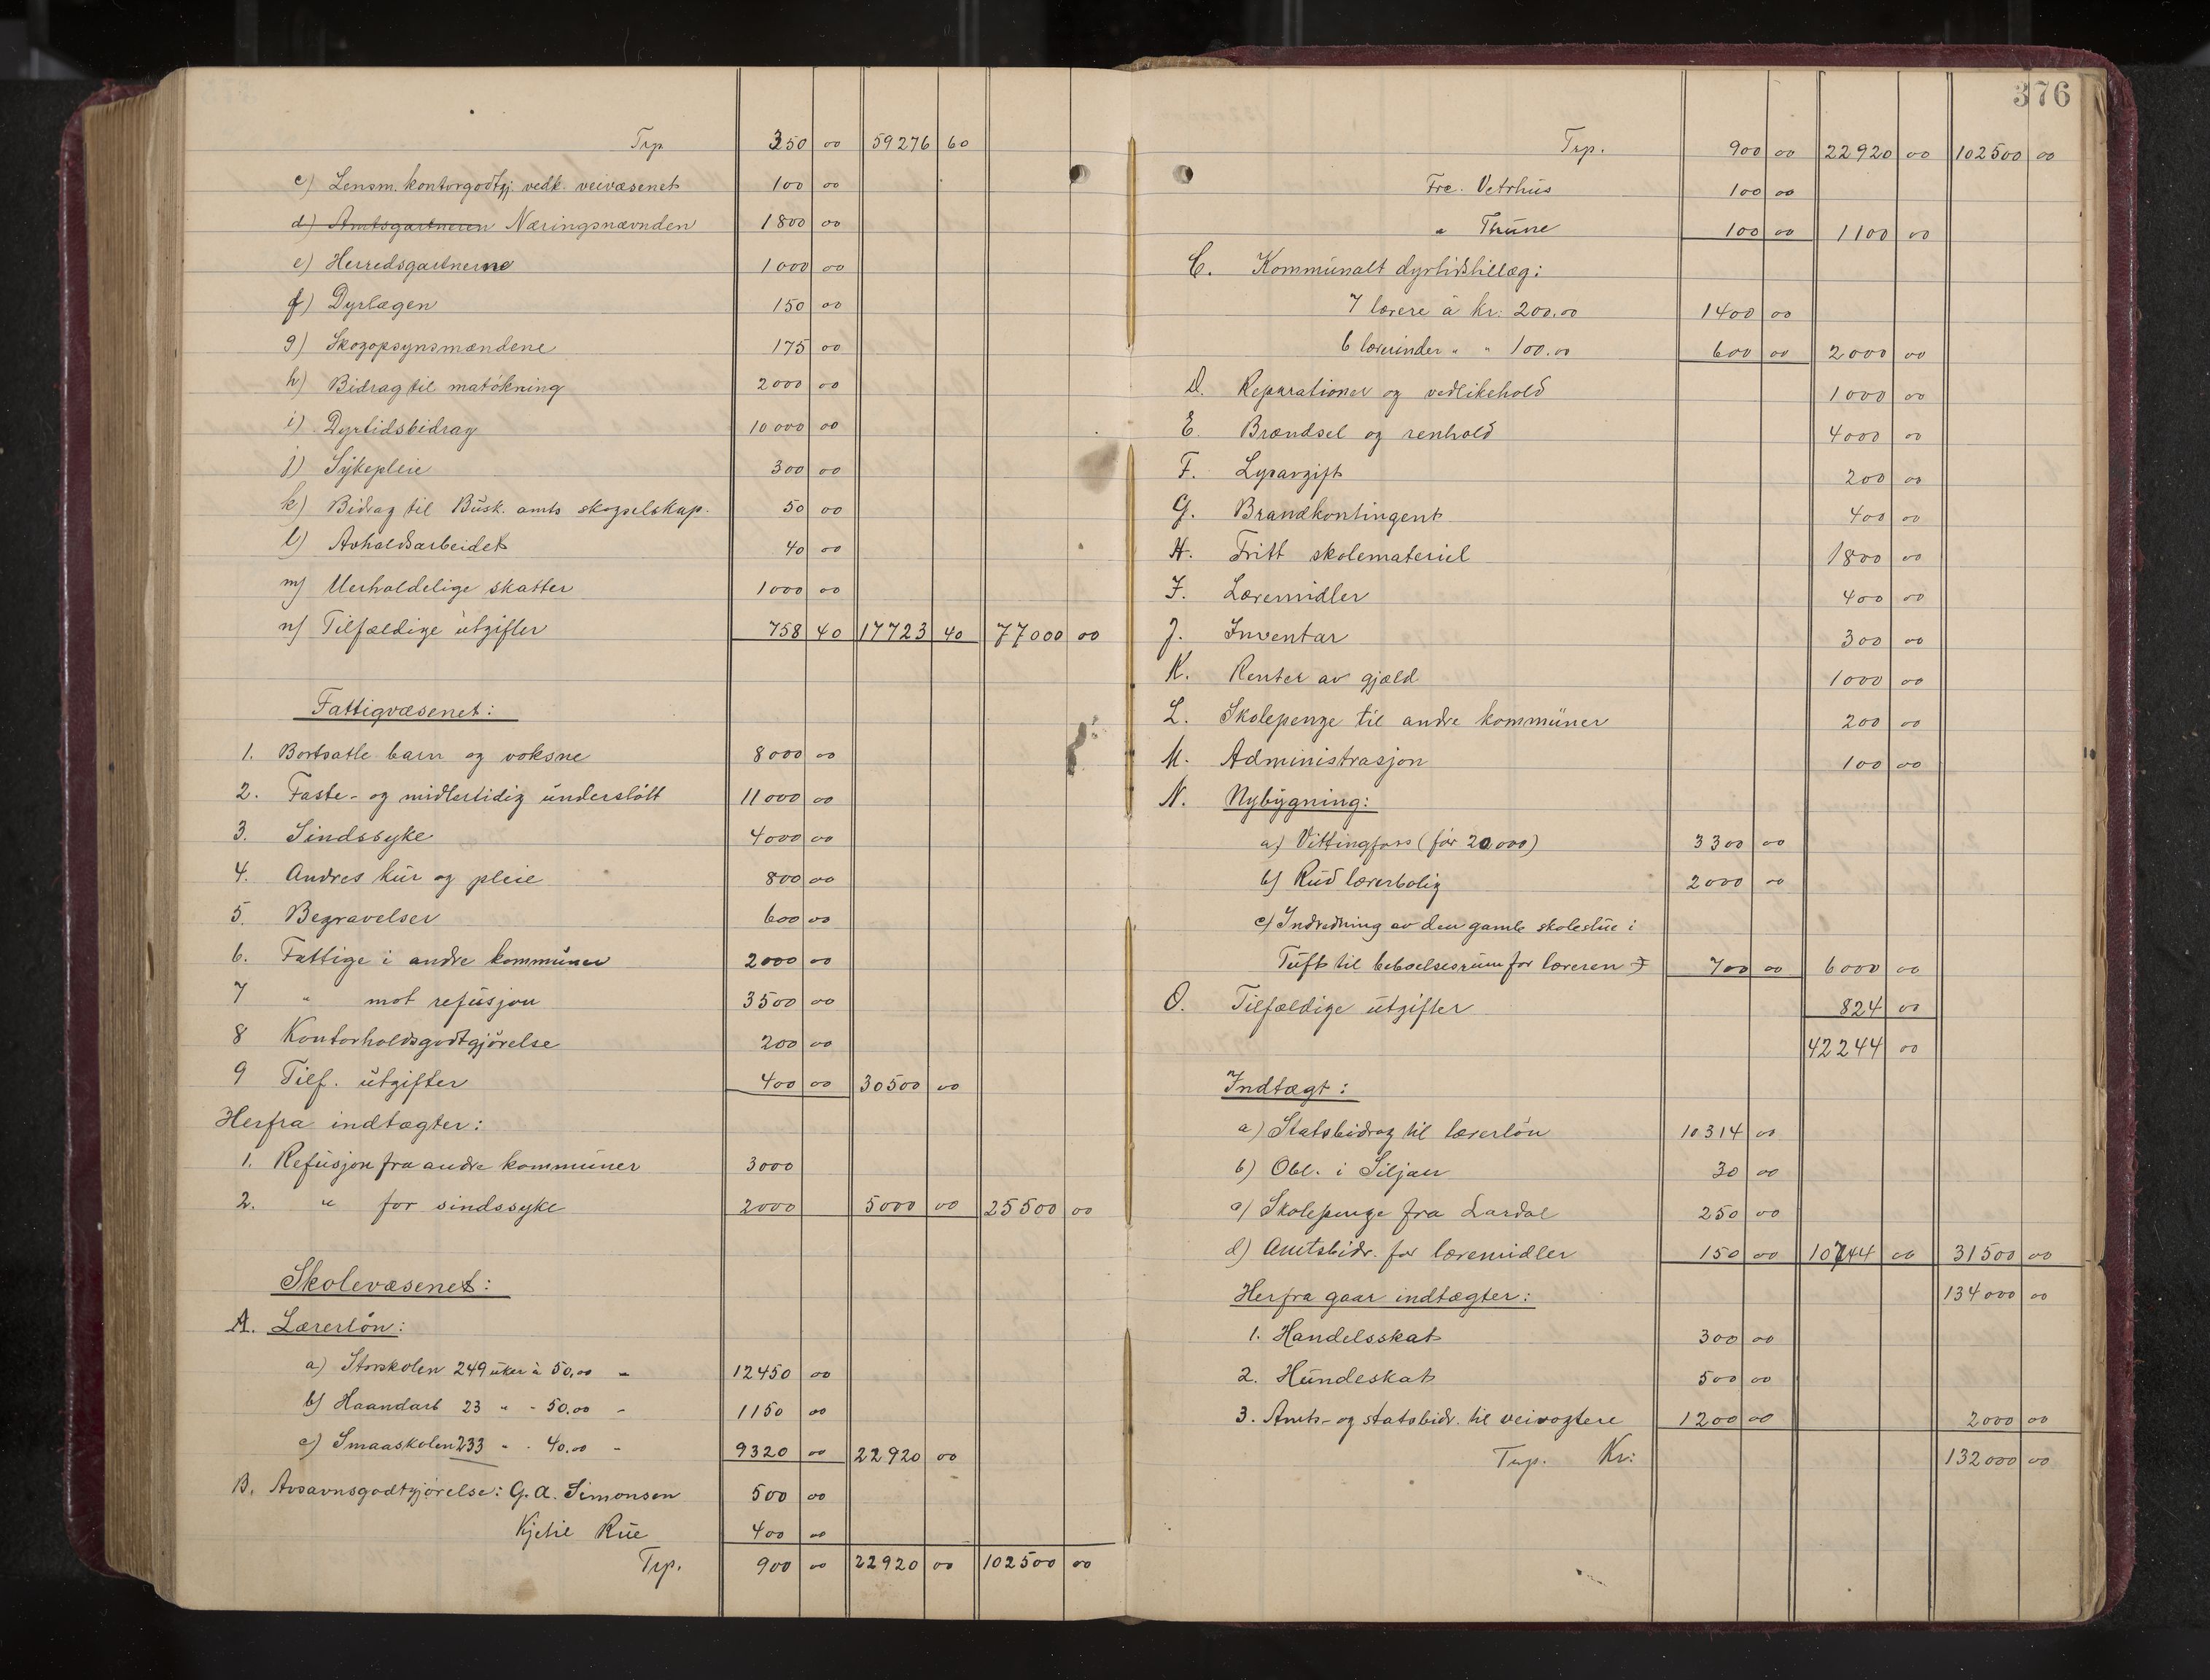 Trp 350 00 59276 60
c) Lensm. kontorgodtgj. vedk. veivæsenet 100 00
d) Amtsgartneren Næringsnævnden 1800 00
e) Herredsgartnerne 1000 00
f) Dyrlægen 150 00
g) Skogopsynsmændene 175 00
h) Bidrag til matökning 2000 00
i) Dyrtidsbidrag 10000 00
j) Sykepleie 300 00
k) Bidrag til Busk. amts skogselskap. 50 00
l) Avholdsarbeidet 40 00
m) Uerholdelige skatter 1000 00
n) Tilfældige utgifter 758 40 17723 40 77000 00
Fattigvæsenet:
1. Bortsatte barn og voksne 8000 00
2. Faste- og midlertidig understött 11000 00
3. Sindssyke 4000 00
4. Andres kur og pleie 800 00
5. Begravelser 600 00
6. Fattige i andre kommuner 2000 00
7 " mot refusjon 3500 00
8 Kontorholdsgodtgjörelse 200 00
9 Tilf. utgifter 400 00 30500 00
Herfra indtægter:
1. Refusjon fra andre kommuner 3000
2. " for sindssyke 2000 5000 00 25500 00
Skolevæsenet:
A. Lærerlön:
a) Storskolen 249 uker à 50,00 - 12450 00
b) Haandarb 23 " - 50.00 - 1150 00
c) Smaaskolen 233 - - 40.00 - 9320 00 22920 00
B. Avsavnsgodtgjörelse: G. A. Simonsen 500 00
Kjetil Rue 400 00
Trp. 900 00 22920 00 102500 00
376
Trp. 900 00 22920 00 102500 00
Frc. Vetrhus 100 00
" Thune 100 00 1100 00
C. Kommunalt dyrtidstillæg:
7 lærere à kr. 200.00 1400 00
6 lærerinder " " 100.00 600 00 2000 00
D. Reparationer og vedlikehold 1000 00
E. Brændsel og renhold 4000 00
F. Lysavgift 200 00
G. Brandkontingent 400 00
H. Fritt skolemateriel 1800 00
I. Læremidler 400 00
J. Inventar 300 00
K. Renter av gjæld 1000 00
L. Skolepenge til andre kommuner 200 00
M. Administrasjon 100 00
N. Nybygning:
a) Vittingfoss (för 20000) 3300 00
b) Rud lærerbolig 2000 00
c) Indredning av den gamle skolestue i
Tuft til beboelsesrum for læreren 700 00 6000 00
O. Tilfældige utgifter 824 00
42244 00
Indtægt:
a) Statsbidrag til lærerlön 10314 00
b) Obl. i Siljan 30 00
c) Skolepenge fra Lardal 250 00
d) Amtsbidr. for læremidler 150 00 10744 00 31500 00
134000 00
Herfra gaar indtægter:
1. Handelsskat 300 00
2. Hundeskat 500 00
3. Amts- og statsbidr. til veivogtere 1200 00 2000 00
Trp. Kr: 132000 00